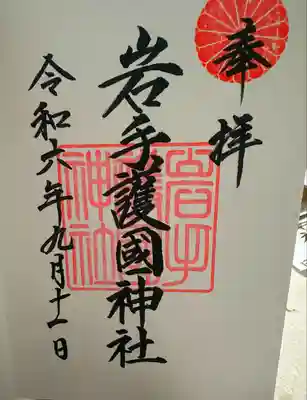 奉拝
岩手護國神社
令和六年九月十一日
岩手
護國
神社